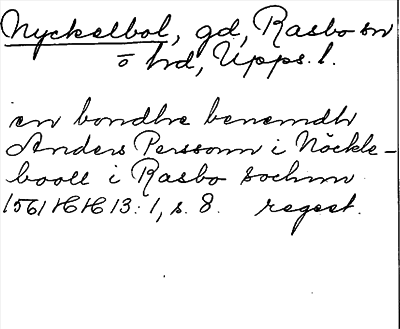 Nyckelbol, gd, Rasbo sn
o hd, Upps. l.
en bondhe benemdh
Anders Personn i Nöckle-
booll i Rasbo sochnn
1561 HH 13: 1, s. 8. regest.